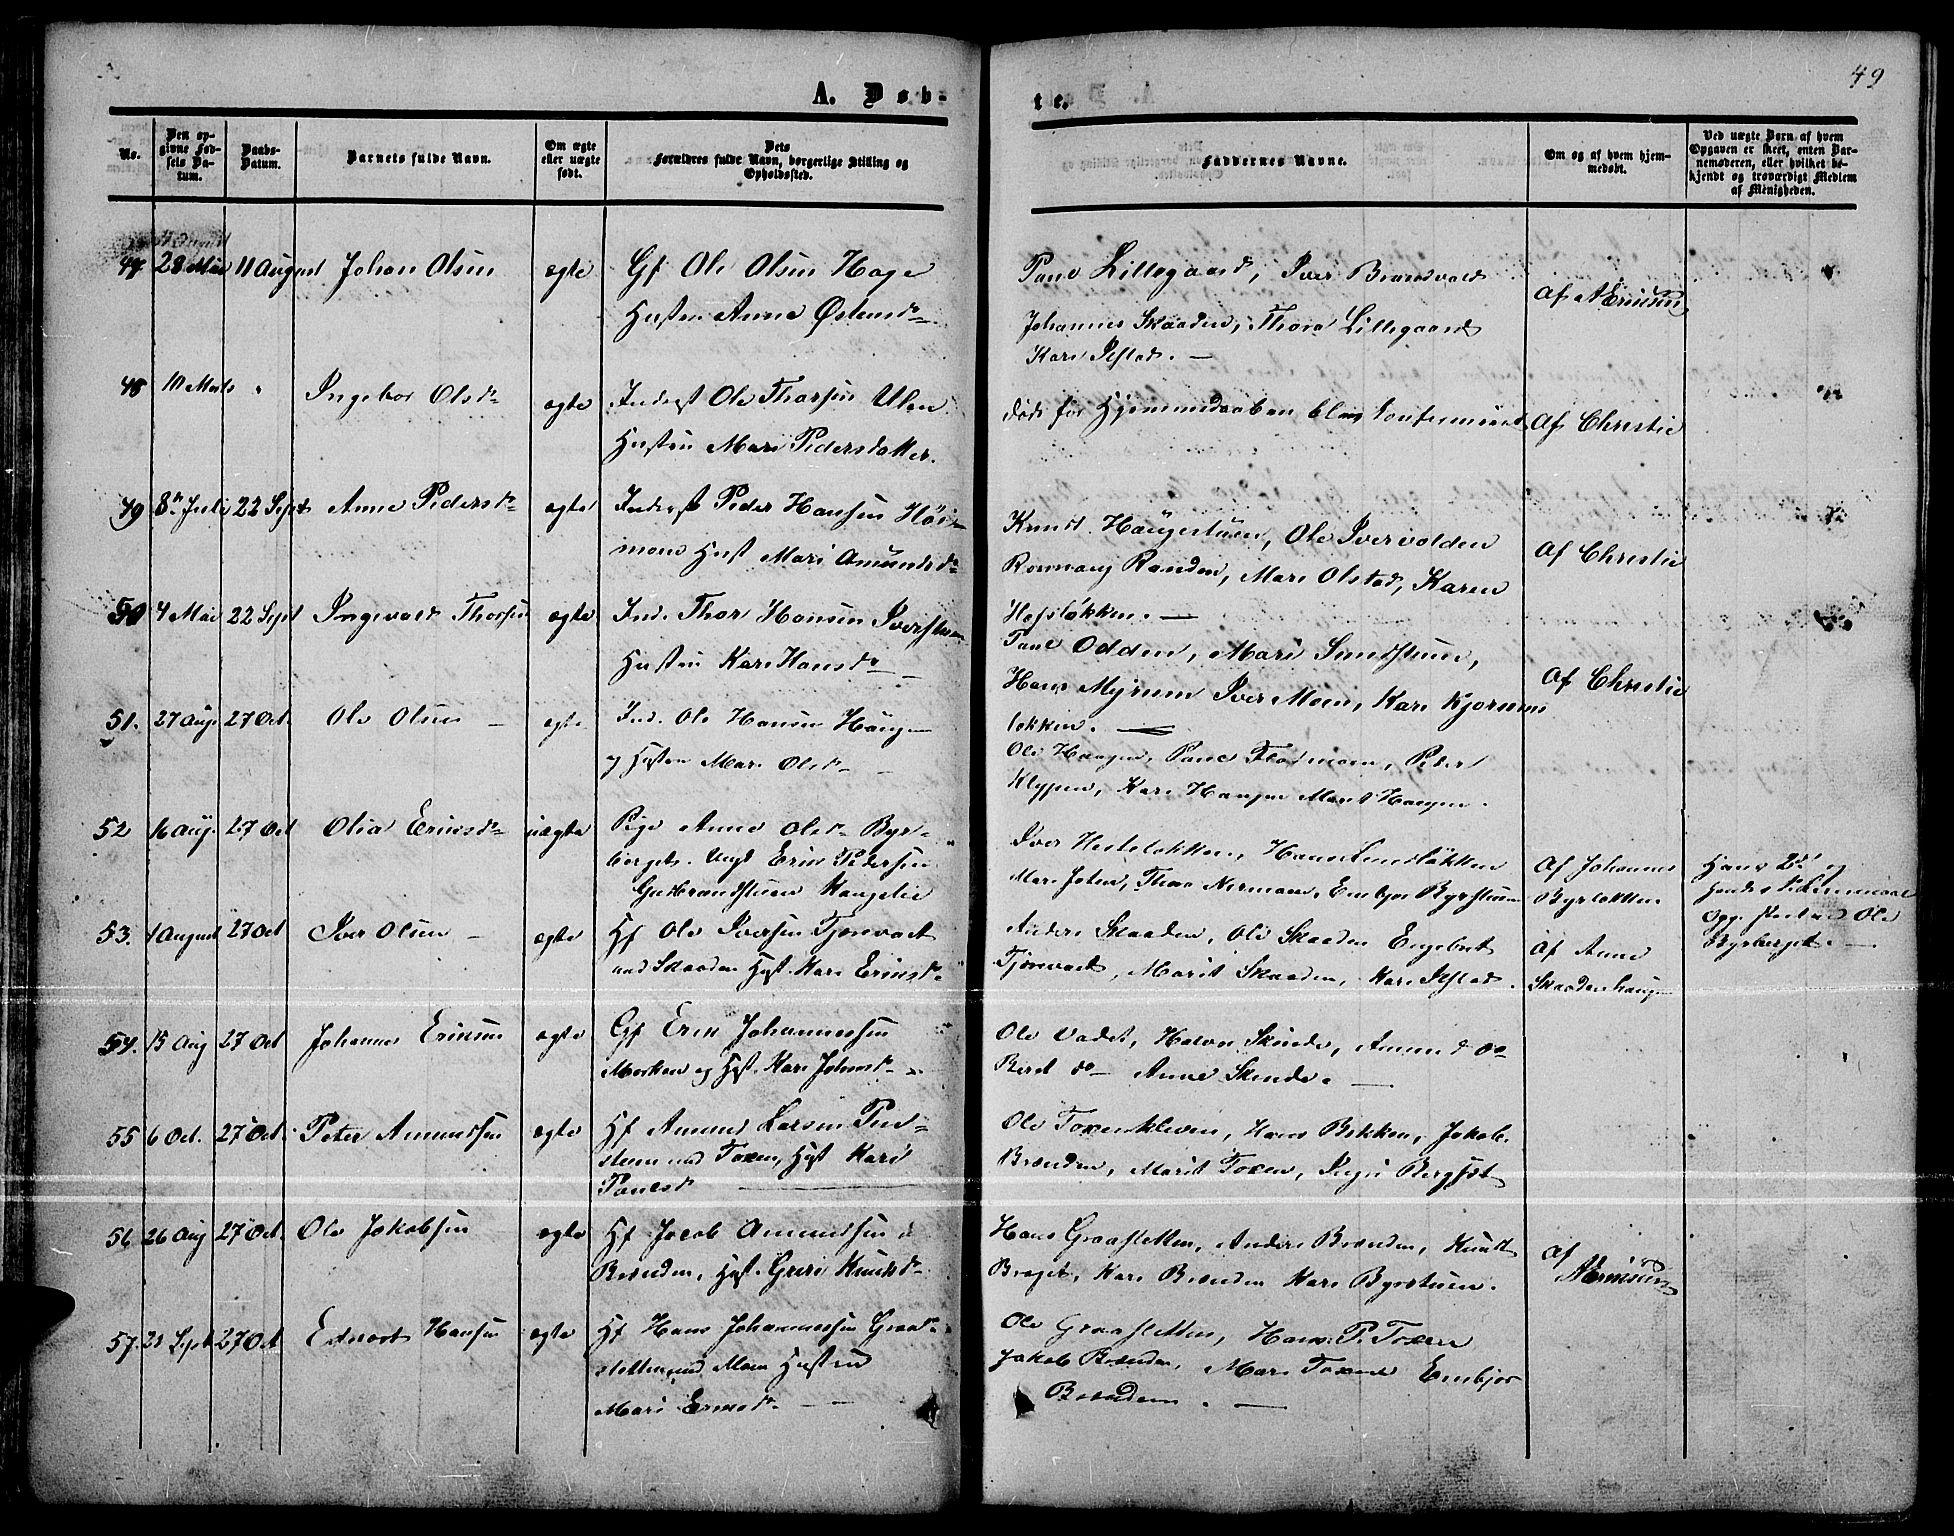 49
A. Døb-
te.
No.
Den op-
givne Fød-
sels Da-
tum.
Daabs-
Datum.
Barnets fulde Navn.
Om ægte
eller uægte
født.
Dets
Forældres fulde Navn, borgerlige Stilling og
Opholdssted.
Faddernes Navne.
Om og af hvem hjem-
medøbt.
Ved uægte Børn af hvem
Opgaven er skeet, enten Bar-
nemoderen, eller hvilket be-
kjendt og troværdigt Medlem
af Menigheden.
47 28 Mai 11 August Johan Olsen ægte Gf Ole Olsen Hage
Hustru Anne Østensdr
Paul Lillegaard, Iver Brandvold
Johannes Skaaden, Thora Lillegaard
Kari
af
48 10 Marts " Ingebor Olsdr ægte Inderst Ole Thorsen Ulen
Hustru Mari Pedersdatter.
døde før Hjemmedaaben blev konfirmeret
Af Christie
49 8de Juli 22 Sept Anne Pedersdr ægte Inderst Peder Hansen
moen Hust Mari Amundsdr
Knud Haugestuen, Ole Ivervolden
Randen, Mari Olstad, Karen
løkken. —
Af Christie
50 4 Mai 22 Sept Ingevald Thorsen ægte Ind. Thor Hansen Iverstuen
Hustru Kari Hansdr —
Paul Odden, Mari Sundstuen,
Hans Myrum Iver Moen, Kari
løkken. —
Af Christie
51. 27 Aug 27 Oct. Ole Olsen — ægte Ind. Ole Hansen Haugen
og Hustru Mari Olsdr —
Ole Haugen, Paul Flatmoen, Peder
Klyppen, Kari Haugen Marit Haugen.
52 16 Aug. 27 Oct Olia Eriksdr uægte Pige Anne Olsdr Byr-
berget. Ungk Erik Pedersen
Gudbrandstuen
Iver Hesteløkken, Hans
Mari Thea Embjør Byrstuen
Af Johannes
Byrløkken
Hans 2det og
Opg. skeet ved Ole
Byrberget. —
53. 1 August 27 Oct Iver Olsen — ægte Hf Ole Iversen
ned Skaaden Hust. Kari Eriksdr
Anders Skaaden, Ole Skaaden Engebret
Marit Skaaden, Kari
Af Anne
Skaadenhaugen
54. 15 Aug 27 Oct Johannes Eriksen ægte Gf Erik Johannessen
Morken og Hust. Kari Johnsdr
Ole Vadet, Halvor Skinde, Amund do
Beret do — Anne Skinde. —
55 6 Oct. 27 Oct. Peter Amundsen ægte Hf Amund Larsen
ned Toxen, Hust Kari
Paulsdr —
Ole Toxenkleven, Hans Bekken, Jakob
Brænden, Marit Toxen,
56 26 Aug 27 Oct. Ole Jakobsen ægte Hf Jacob Amundsen
Brænden, Hust. Guri Knudsdr
Hans Graasletten, Anders Brænden, Knud
Kari Brænden Kari Byrstuen.
af
57. 21 Sept 27 Oct Edevart Hansen ægte Hf Hans Johannessen Graa-
sletten ned Moen Hustru
Mari Eriksdr — —
Ole Graasletten, Hans P. Toxen
Jakob Brænden, Mari Toxen Embjør
Brænden. —